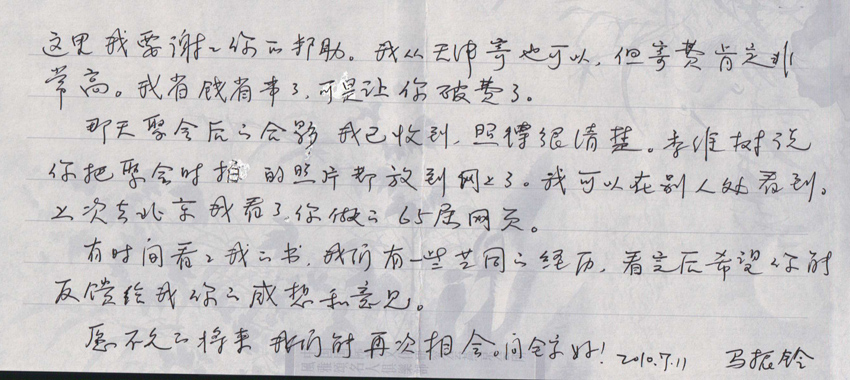 这里我要谢谢你的帮助。我从天津寄也可以，但寄费肯定非
常高。我省钱省事了，可是让你破费了。
那天聚会后之合影我已收到，照得很清楚。李维树说
你把聚会时拍的照片都放到网上了。我可以在别人处看到。
上次去北京我看了你做之65届网页。
有时间看看我之书，我们有一些共同之经历，看完后希望你能
反馈给我你之感想和意见。
愿不久之将来我们能再次相会。问全家好！2010.7.11 马振铃